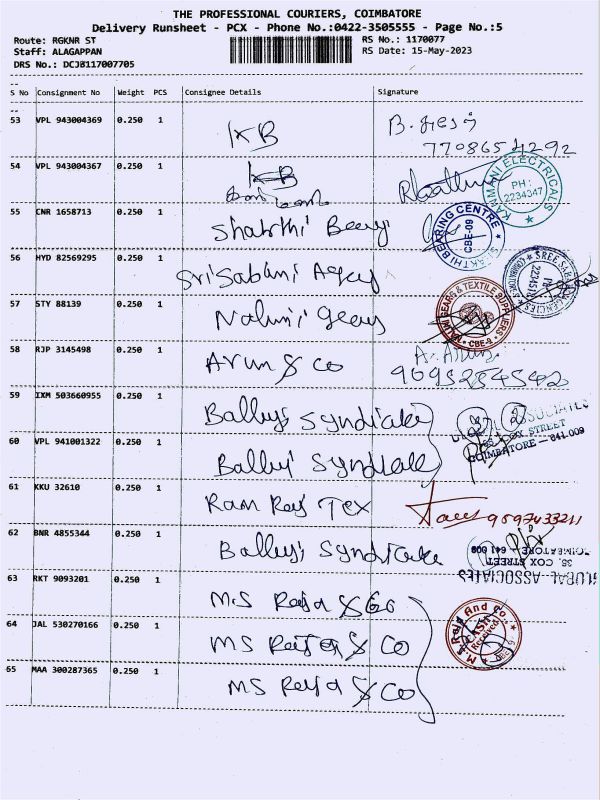 THE PROFESSIONAL COURIERS, COIMBATORE
Delivery Runsheet - PCX - Phone No.:0422-3505555 - Page No.:5
Route: RGKNR ST RS No.: 1170077
Staff: ALAGAPPAN RS Date: 15-May-2023
DRS No.: DCJ8117007705
S No Consignment No Weight PCS Consignee Details Signature
53 VPL 943004369 0.250 1 KB
54 VPL 943004367 0.250 1 KB
KANMANI ELECTRICALS
PH: 2234347
55 CNR 1658713 0.250 1 Shakthi Bearg
SHAKTHI BEARING CENTRE
CBE-09
56 HYD 82569295 0.250 1 Sri Sabani Agey
57 STY 88139 0.250 1 Nalini gears
NALINI GEARS & TEXTILE SUPPLIERS
CBE-9
58 RJP 3145498 0.250 1 Arun & Co A. Arun
59 IXM 503660955 0.250 1 Balleyi Syndicate
60 VPL 941001322 0.250 1 Balleyi Syndicate
ASSOCIATES
COX STREET
COIMBATORE - 641 009
61 KKU 32610 0.250 1 Ram Raj Tex
62 BNR 4855344 0.250 1 Balleyi Syndicate
GLOBAL ASSOCIATES
35, COX STREET
COIMBATORE - 641 009
63 RKT 9093201 0.250 1 M.S Raja & Co
64 JAL 530270166 0.250 1 MS Raja & Co
M.S. Raja And Co.
65 MAA 300287365 0.250 1 MS Raja & Co